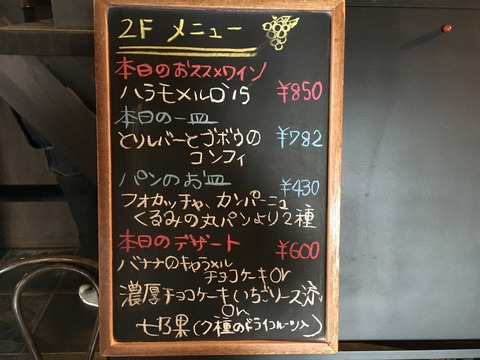 2F メニュー
本日のおススメワイン
ハラモメルロ15 ¥850
本日の一皿
とりレバーとゴボウの ¥782
コンフィ
パンのお皿 ¥430
フォカッチャ、カンパーニュ
くるみの丸パンより2種
本日のデザート ¥600
バナナのキャラメル
チョコケーキ or
濃厚チョコケーキいちごソース添
or
七乃果(7種のドライフルーツ入)